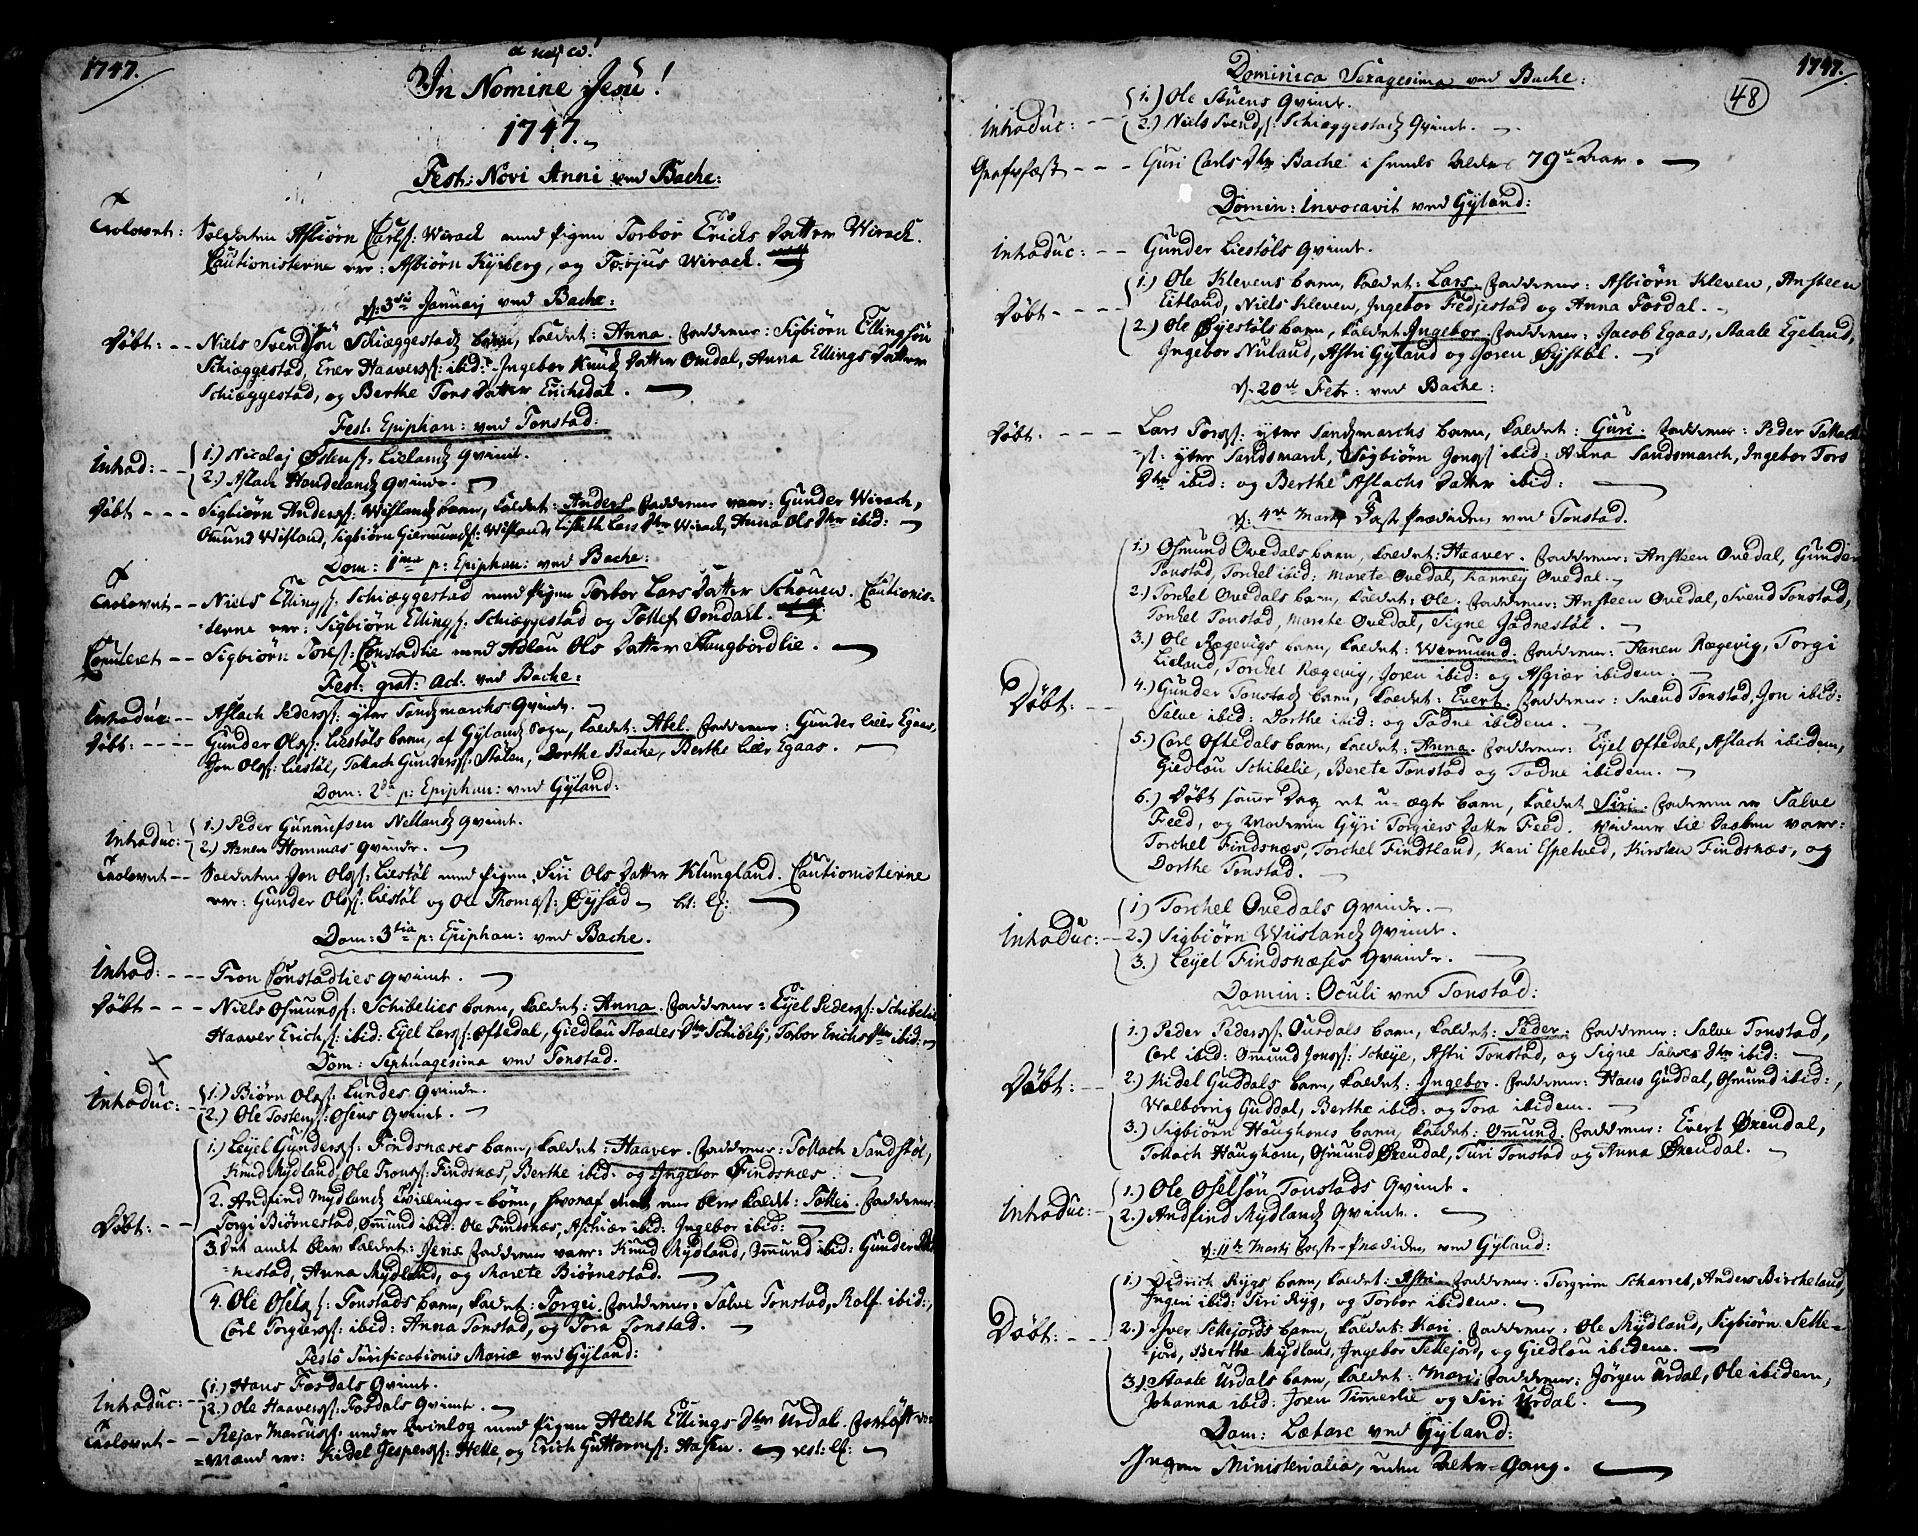 1747.
In Nomine Jesu!
1747.
Fest: Novi Anni ved Bache:
Trolovet: Soldaten Asbiørn Carls: Wirach med Pigen Torbor Erichs Datter Wirach.
Cautionisterne er: Asbiørn Kyrberg, og Torjus Wirach.
d: 3die Januarj ved Bache:
Døbt: -- Niels Svendsøn Schiæggestads barn, kaldet: Anna. Fadderne: Sigbiørn Ellingsøn
Schiæggestad, Ener Haavers: ibid: Ingebor Knuds Datter Omdal, Anna Ellings Datter
Schiæggestad, og Berthe Tors Datter Erichsdal.
Fest: Epiphan: ved Tonstad:
Introd: -- 1.) Nicolaj Østens: Lielands Qvinde.
2.) Aslach Haudelands Qvinde.
Døbt --- Sigbiørn Anders: Wislands barn, kaldet: Anders. Fadderne vare: Gunder Wirach,
Omund Wisland, Sigbiørn Giermunds: Wisland, Lisbeth Lars Dtr Wirach, Anna Ols Dtr ibid:
Dom: 1ma p: Epiphan: ved Bache:
Trolovet -- Niels Ellings: Schiæggestad med Pigen Torbor Lars Datter Schouen. Cautionis-
terne er: Sigbiørn Ellings: Schiæggestad og Tollef Omdal.
Copuleret -- Sigbiørn Tores: Constadlie med Adlau Ols Datter Haugbordlie.
Fest: grat: act. ved Bache:
Introduc -- Aslach Peders: yter Sandsmarchs Qvinde.
Døbt: ---- Gunder Ols: Liestøls barn, af Gylands Sogn, kaldet: Abel. Fadderne: Gunder lille Egaas,
Jon Ols: Liestøl, Tollach Gunders: Stølen, Dorthe Bache, Berthe lille Egaas.
Dom: 2da p: Epiphan: ved Gyland:
Introduc: 1.) Peder Gunnufsen Nellands Qvinde.
2.) Aanen Hommas Qvinde.
Trolovet -- Soldaten Jon Ols: Liestøl med Pigen Siri Ols Datter Klungland. Cautionisterne
er: Gunder Ols: Liestøl og Ole Thomas: Øysad
Dom: 3tia p: Epiphan: ved Bache.
Introd: --- Tron Constadlies Qvinde.
Døbt --- Niels Osmunds: Schibelies barn, kaldet: Anna. Fadderne: Eyel Peders: Schibelie
Haaver Erichs: ibid: Eyel Lars: Oftedal, Giedlau Staales Dtr Schibelj, Torbor Erichs Dtr ibid:
Dom: Sephuagesima ved Tonstad.
Introduc: 1.) Biørn Ols: Lundes Qvinde.
2.) Ole Tostens: Osens Qvinde.
1.) Leyel Gunders: Findsnæses barn, kaldet: Haaver. Fadderne: Tollach Sandstøl,
Knud Mydland, Ole Trons: Findsnæs, Berthe ibid: og Ingebor Findsnæs
2. Andfind Mydlands Tvillinge-børn, hvoraf det ene blev kaldet: Tollei. Fadderne:
Døbt: -- Torgi Biørnestad, Omund ibid: Ole Findsnæs, Aschiær ibid: Ingebor ibid:
3. Det andet blev kaldet: Jens. Fadderne vare: Knud Mydland, Omund ibid: Gunder
-nestad, Anna Mydland, og Marete Biørnestad.
4. Ole Osels: Tonstads barn, kaldet: Torgei. Fadderne: Salve Tonstad, Rolf ibid:,
Carl Torgiers: ibid: Anna Tonstad, og Tora Tonstad.
Festo Purificationis Mariæ ved Gyland:
Introduc: 1.) Hans Fosdals Qvinde.
2.) Ole Haavers: Fosdals Qvinde.
Trolovet -- Rejar Marcus: under Qvinlog med Pigen Aleth Ellings Dtr Urdal.
-Mænd er: Kidel Jespers: Helle, og Erich Guttorms: Aasen.
1747.
48
Dominica Sexagesima ved Bache:
Introduc: -- 1.) Ole Stuens Qvinde.
2.) Niels Svends: Schiæggestads Qvinde.
Grafvfæst --- Guri Carls Dtr Bache i hendes Alders 79de Aar.
Domin: Invocavit ved Gyland:
Introduc: -- Gunder Liestøls Qvinde.
1.) Ole Klevens barn, kaldet: Lars. Fadderne: Asbiørn Kleven, Ansteen
Døbt ---- Eitland, Niels Kleven, Ingebor Fredjestad og Anna Fosdal.
2.) Ole Øyestøls barn, kaldet Ingebor. Fadderne: Jacob Egaas, Staale Egeland,
Ingebor Nuland, Astri Gyland og Joren Øystøl.
d. 20de Febr: ved Bache:
Døbt. ---- Lars Tors: yter Sandsmarchs barn, kaldet: Guri. Fadderne: Peder Tollach
s: yter Sandsmarch, Sigbiørn Jons: ibid: Anna Sandsmarch, Ingebor Tors
Dtr ibid: og Berthe Aslachs Datter ibid:
d: 4de Martj Faste Prædiken, ved Tonstad.
1.) Osmund Ovedals barn, kaldet: Haaver. Fadderne: Ansteen Ovedal, Gunder
Tonstad, Torchel ibid: Marete Ovedal, Ranney Ovedal.
2.) Torchel Ovedals barn, kaldet: Ole. Fadderne: Ansteen Ovedal, Svend Tonstad,
Torchel Tonstad, Marete Ovedal, Signe Gadnestøl.
3.) Ole Rægevigs barn, kaldet: Wermund. Fadderne: Aanen Rægevig, Torgi
Lieland, Torchel Rægevig, Joren ibid: og Asgiær ibidem.
Døbt: -- 4.) Gunder Tonstads barn, kaldet: Evert. Fadderne: Svend Tonstad, Jon ibid:
Salve ibid: Dorthe ibid: og Todne ibidem.
5.) Carl Oftedals barn, kaldet: Anna. Fadderne: Eyel Oftedal, Aslach ibidem,
Giedlau Schibelie, Berete Tonstad og Todne ibidem.
6.) Døbt samme Dag et u-ægte barn, kaldet Siri. Faderen er Salve
Feed, og Moderen Gyri Torgiers Datter Feed. Vidner til Daaben vare:
Torchel Findsnæs, Torchel Findtland, Kari Espetved, Kirsten Findsnæs, og
Dorthe Tonstad.
1) Torchel Ovedals Qvinde.
Introduc: -- 2.) Sigbiørn Wiislands Qvinde.
3.) Leyel Findsnæses Qvinde.
Domin: Oculi ved Tonstad:
1.) Peder Peders: Ousdals barn, kaldet: Peder: Fadderne: Salve Tonstad,
Carl ibid: Omund Jons: Scheye, Astri Tonstad, og Signe Salves Dtr ibid:
Døbt: -- 2.) Kidel Guddals barn, kaldet: Ingebor. Fadderne: Hans Guddal, Osmund ibid:,
Walborrig Guddal, Berthe ibid: og Tora ibidem.
3.) Sigbiørn Haughoms barn, kaldet: Omund. Fadderne: Evert Øxendal,
Tollach Haughom, Osmund Øxendal, Turi Tonstad og Anna Øxendal.
Introduc: 1.) Ole Oselsøn Tonstads Qvinde.
2.) Andfind Mydlands Qvinde.
d: 11te Martj Faste-Prædiken, ved Gyland:
1.) Didrich Rygs barn, kaldet: Astri. Fadderne: Torgrim Scharret, Anders Bircheland,
Ingeri ibid: Siri Ryg, og Torbor ibidem.
Døbt: -- 2.) Iver Settejords barn, kaldet: Kari. Fadderne: Ole Mydland, Sigbiørn Sette-
jord, Berthe Mydland, Ingebor Settejord, og Giedlau ibidem.
3.) Staale Urdals barn, kaldet: Mari. Fadderne: Jørgen Urdal, Ole ibidem,
Johanna ibid: Joren Timmerlie og Siri Urdal.
Dom: Lætare ved Gyland:
Ingen Ministerialia, uden Alter-Gang.